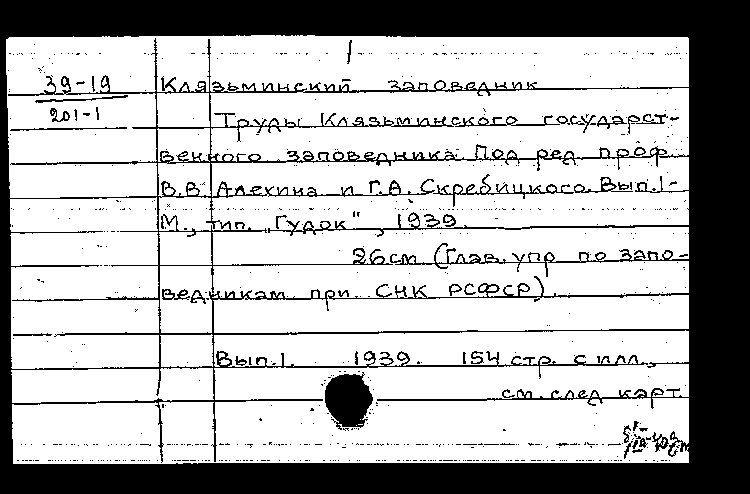 39-19
201-1
Клязьминский заповедник
Труды Клязьминского государст-
венного заповедника. Под ред. проф.
В.В. Алехина и Г.А. Скребицкого. Вып.1-
М., тип. „Гудок", 1939.
26см. (Глав. упр. по запо-
ведникам при СНК РСФСР).
Вып.1. 1939. 154 стр. с илл.,
см. след. карт.